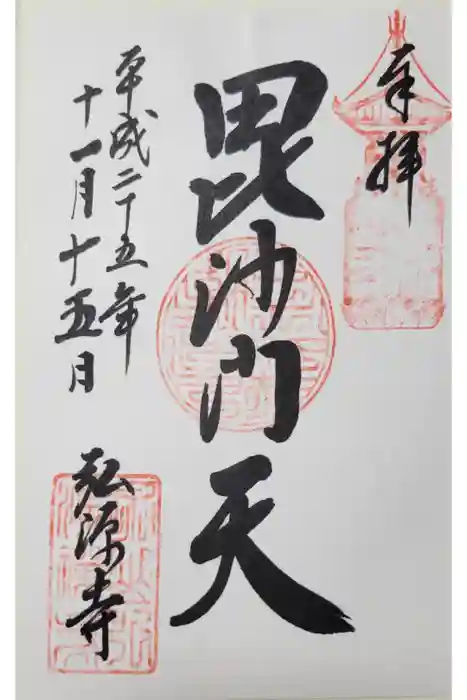 奉拝
毘沙門天
平成二十五年
十一月十五月
弘源寺